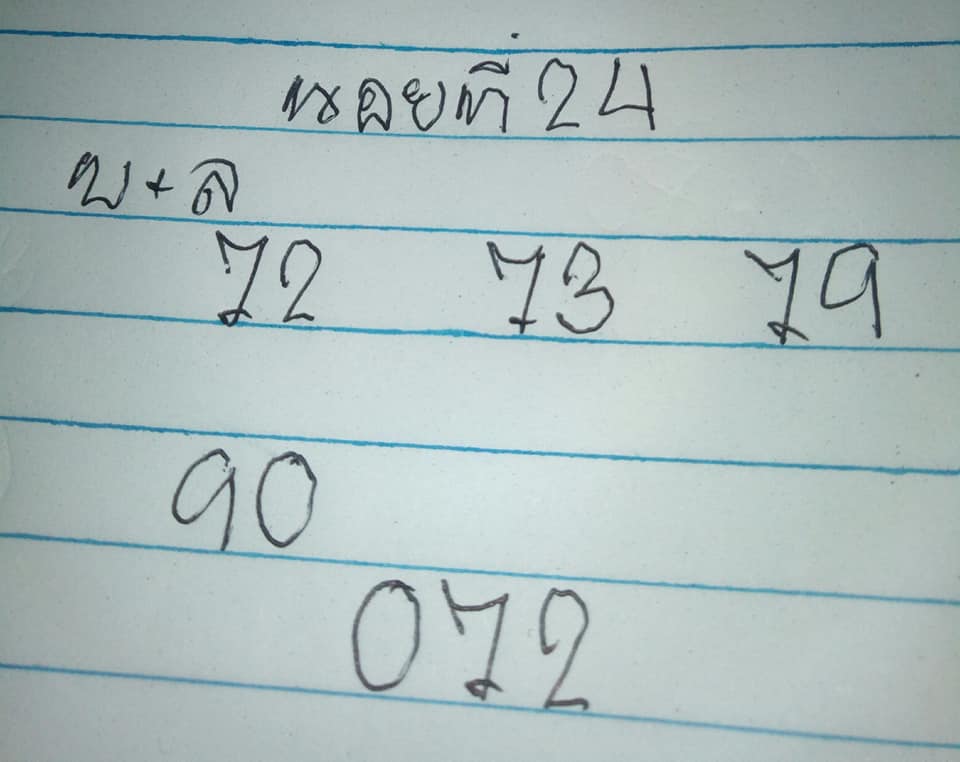 หอยที่ 24
บ+ล
72 73 79
90
072